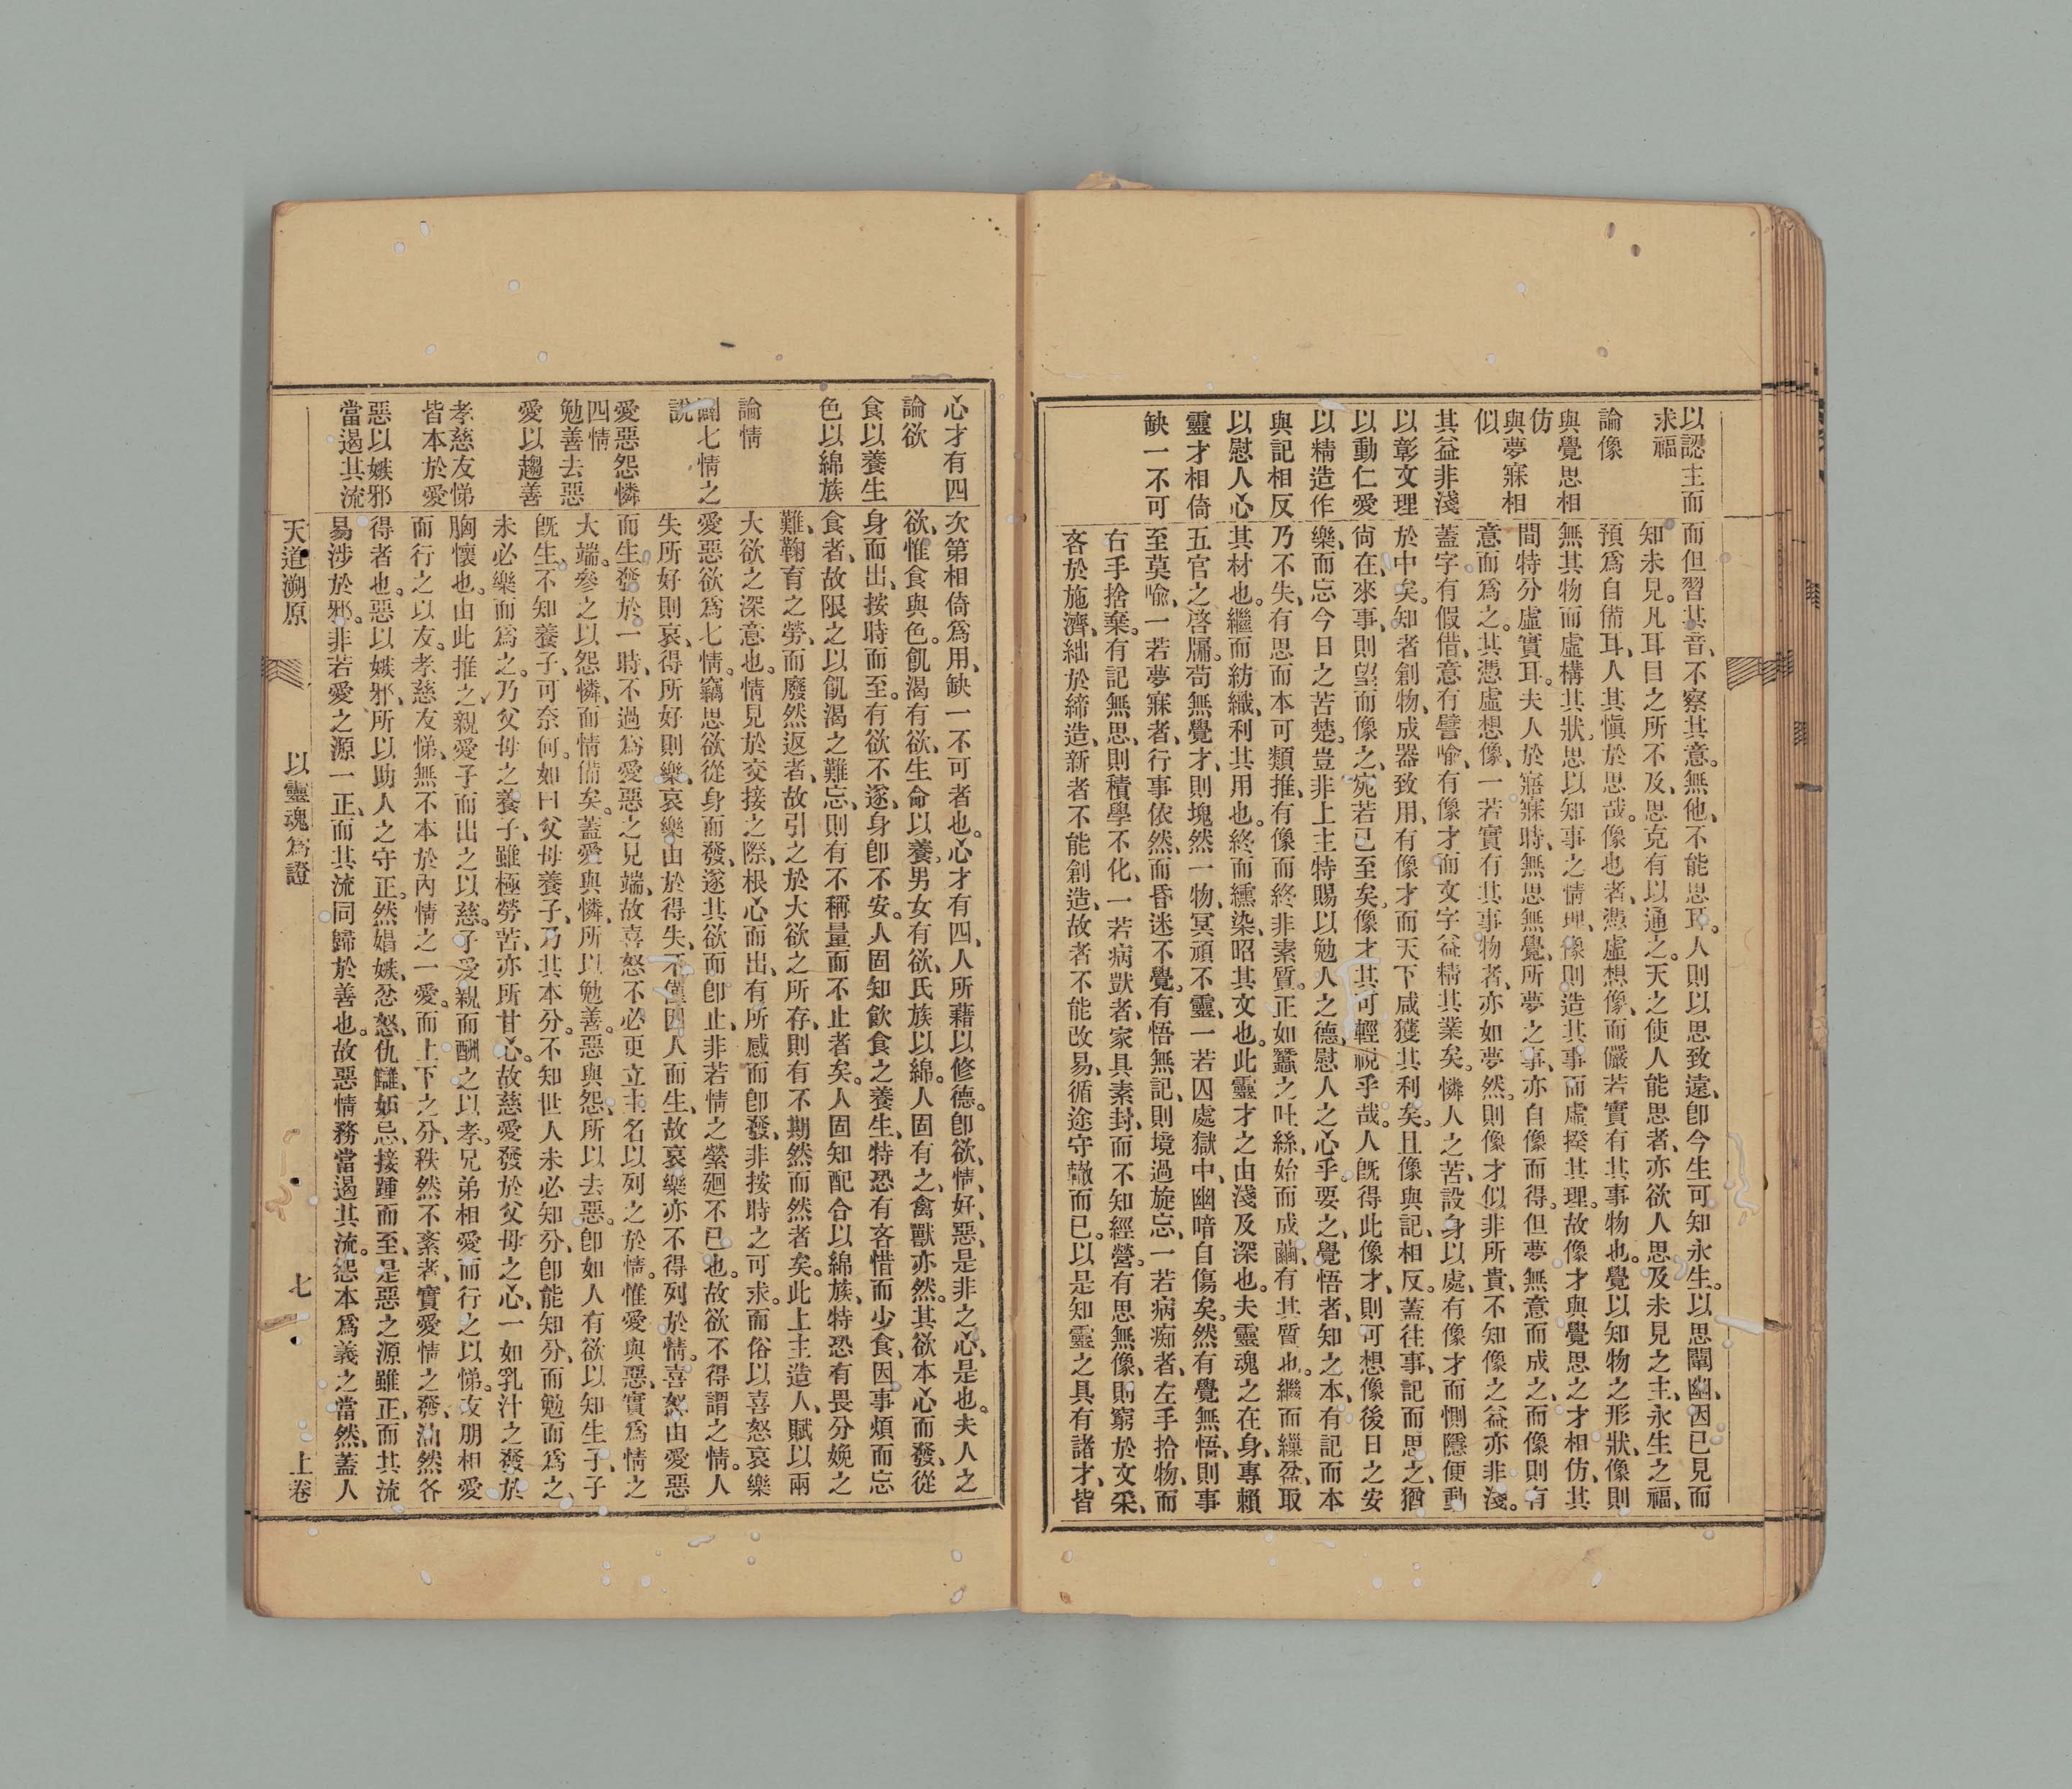 以認主而
求福
論像
與覺思相
仿
與夢寐相
似
其益非淺
以彰文理
以動仁愛
以精造作
與記相反
以慰人心
靈才相倚
缺一不可
而但習其音、不察其意。無他、不能思耳。人則以思致遠、卽今生可知永生。以思闡幽、因已見而
知未見。凡耳目之所不及、思克有以通之。天之使人能思者、亦欲人思及未見之主、永生之福、
預爲自備耳、人其愼於思哉。像也者、憑虛想像、而儼若實有其事物也。覺以知物之形狀、像則
無其物而虛構其狀。思以知事之情理、像則造其事而虛揆其理。故像才與覺思之才相仿、其
間特分虛實耳。夫人於寤寐時、無思無覺、所夢之事、亦自像而得。但夢無意而成之、而像則有
意而爲之。其憑虛想像、一若實有其事物者、亦如夢然。則像才似非所貴、不知像之益亦非淺。
蓋字有假借、意有譬喩、有像才而文字益精其業矣。憐人之苦、設身以處、有像才而惻隱便動
於中矣。知者創物、成器致用、有像才而天下咸獲其利矣。且像與記、相反。蓋往事、記而思之、猶
尙在、來事、則望而像之、宛若已至矣。像才其可輕視乎哉。人旣得此像才、則可想像後日之安
樂、而忘今日之苦楚。豈非上主特賜以勉人之德、慰人之心乎。要之、覺悟者、知之本、有記而本
乃不失、有思而本可類推、有像而終非素質。正如蠶之吐絲、始而成繭、有其質也。繼而繅盆、取
其材也。繼而紡織、利其用也。終而纁染、昭其文也。此靈才之由淺及深也。夫靈魂之在身、專賴
五官之啓牖。苟無覺才、則塊然一物、冥頑不靈、一若囚處獄中、幽暗自傷矣。然有覺無悟、則事
至莫喩、一若夢寐者、行事依然、而昏迷不覺。有悟無記、則境過旋忘、一若病痴者、左手拾物、而
右手捨棄。有記無思、則積學不化、一若病獃者、家具素封、而不知經營。有思無像、則窮於文采、
吝於施濟、絀於締造、新者不能創造、故者不能改易、循途守轍而已。以是知靈之具有諸才、皆
心才有四
論欲
食以養生
色以綿族
論情
闢七情之
說
愛惡怨憐
四情
勉善去惡
愛以趨善
孝慈友悌
皆本於愛
惡以嫉邪
當遏其流
次第相倚爲用、缺一不可者也。心才有四、人所藉以修德。卽欲、情、好、惡、是非之心、是也。夫人之
欲、惟食與色。飢渴有欲、生命以養。男女有欲、氏族以綿。人固有之、禽獸亦然。其欲本心而發、從
身而出、按時而至。有欲不遂、身卽不安。人固知飮食之養生、特恐有吝惜而少食、因事煩而忘
食者、故限之以飢渴之難忘、則有不稱量而不止者矣。人固知配合以綿族、特恐有畏分娩之
難、鞠育之勞、而廢然返者、故引之於大欲之所存、則有不期然而然者矣。此上主造人、賦以兩
大欲之深意也。情見於交接之際、根心而出、有所感而卽發、非按時之可求。而俗以喜怒哀樂
愛惡欲爲七情。竊思欲從身而發、遂其欲而卽止、非若情之縈廻不已也。故欲不得謂之情。人
失所好則哀、得所好則樂、哀樂由於得失、不僅因人而生、故哀樂亦不得列於情。喜怒由愛惡
而生、發於一時、不過爲愛惡之見端、故喜怒不必更立主名、以列之於情。惟愛與惡、實爲情之
大端。參之以怨憐、而情備矣。蓋愛與憐、所以勉善。惡與怨、所以去惡。卽如人有欲以知生子、子
旣生、不知養子、可奈何。如曰父母養子、乃其本分。不知世人未必知分、卽能知分、而勉而爲之、
未必樂而爲之。乃父母之養子、雖極勞苦、亦所甘心。故慈愛發於父母之心、一如乳汁之發於
胸懷也。由此推之、親愛子而出之以慈。子愛親而酬之以孝。兄弟相愛而行之以悌。友朋相愛
而行之以友。孝慈友悌、無不本於內情之一愛。而上下之分、秩然不紊者、實愛情之發、油然各
得者也。惡以嫉邪、所以助人之守正。然娼嫉、忿怒、仇讎、妬忌、接踵而至。是惡之源雖正、而其流
易涉於邪。非若愛之源一正、而其流同歸於善也。故惡情務當遏其流。怨本爲義之當然、蓋人
天道溯原 以靈魂爲證 七 上卷